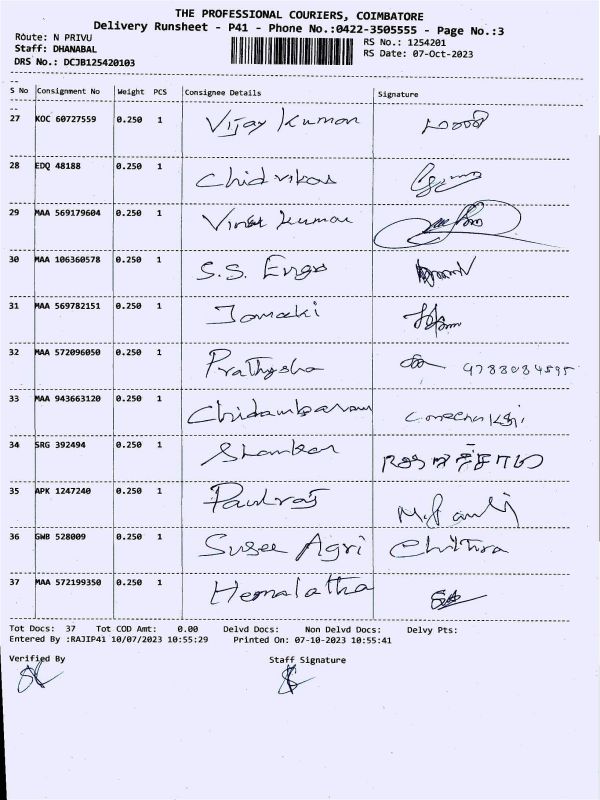 THE PROFESSIONAL COURIERS, COIMBATORE
Delivery Runsheet - P41 - Phone No.:0422-3505555 - Page No.:3
Route: N PRIVU
RS No.: 1254201
Staff: DHANABAL
RS Date: 07-Oct-2023
DRS No.: DCJB125420103
S No Consignment No Weight PCS Consignee Details Signature
27 KOC 60727559 0.250 1 Vijay Kumar
28 EDQ 48188 0.250 1
29 MAA 569179604 0.250 1 Kumar
30 MAA 106360578 0.250 1 S.S. Engs
31 MAA 569782151 0.250 1 Janaki
32 MAA 572096050 0.250 1 Prathysha
33 MAA 943663120 0.250 1 Chidambaram
34 SRG 392494 0.250 1 Shankar
35 APK 1247240 0.250 1 Paulraj
36 GWB 528009 0.250 1 Susee Agri Chithra
37 MAA 572199350 0.250 1 Hemalatha
Tot Docs: 37 Tot COD Amt: 0.00 Delvd Docs: Non Delvd Docs: Delvy Pts:
Entered By :RAJIP41 10/07/2023 10:55:29 Printed On: 07-10-2023 10:55:41
Verified By Staff Signature